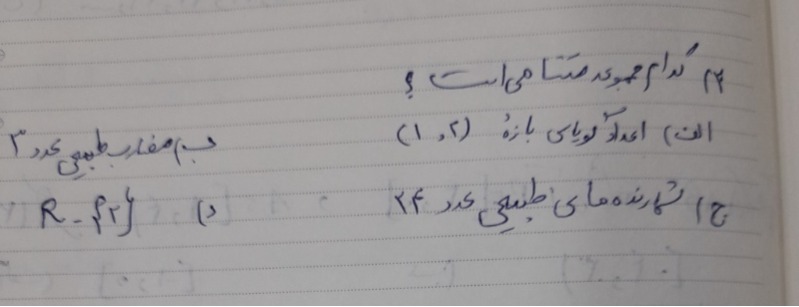 ۳) کدام مجموعه متناهی است ؟
الف) اعداد گویای بازهٔ (۱,۲) ب) مضارب طبیعی عدد ۳
ج) شمارنده های طبیعی عدد ۲۴ د) R - {۲}